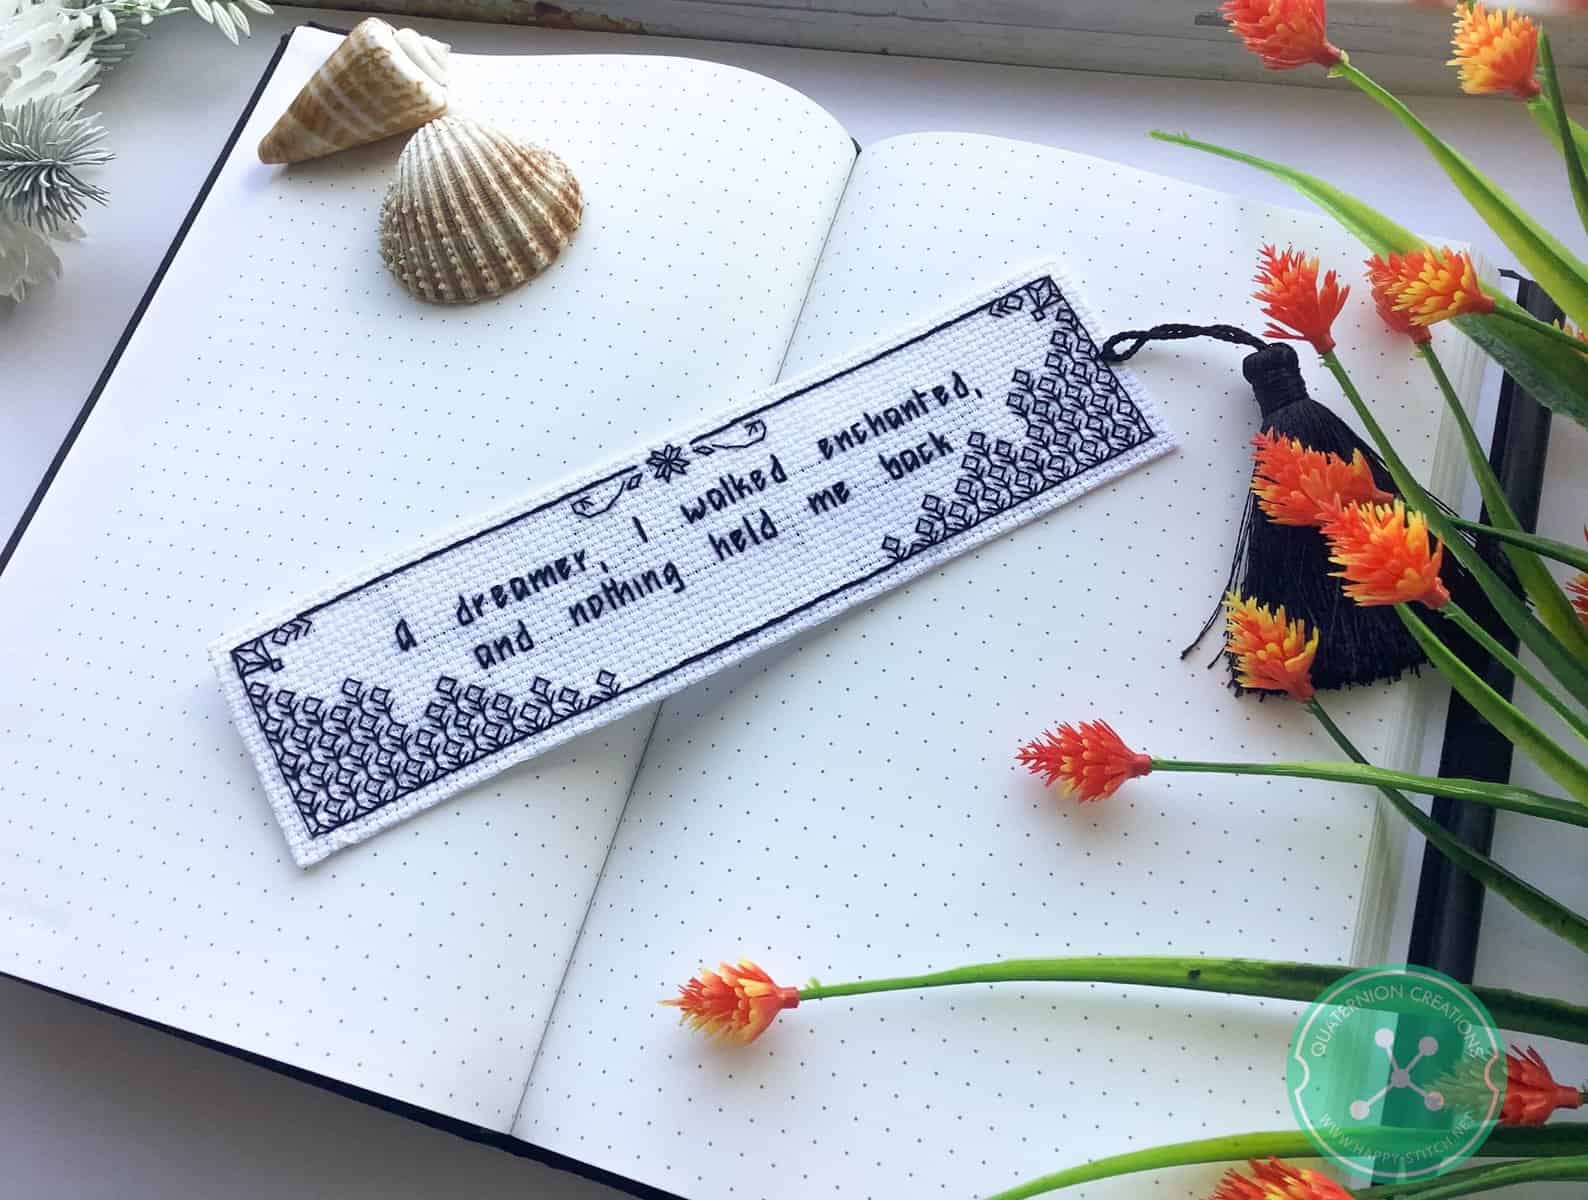 a dreamer, I walked enchanted,
and nothing held me back
QUATERNION CREATIONS
WWW.HAPPY-STITCH.NET